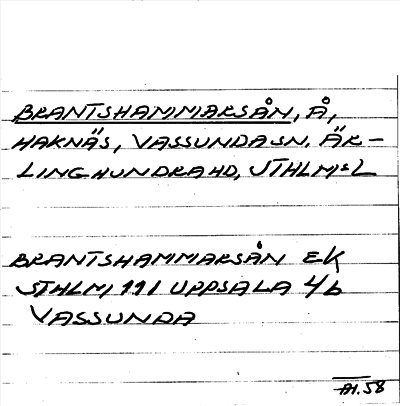 BRANTSHAMMARSÅN, Å,
HAKNÄS, VASSUNDA SN, ÄR-
LINGHUNDRA HD, STHLMS L
BRANTSHAMMARSÅN EK
STHLM 111 UPPSALA 4/b
VASSUNDA
A1.58